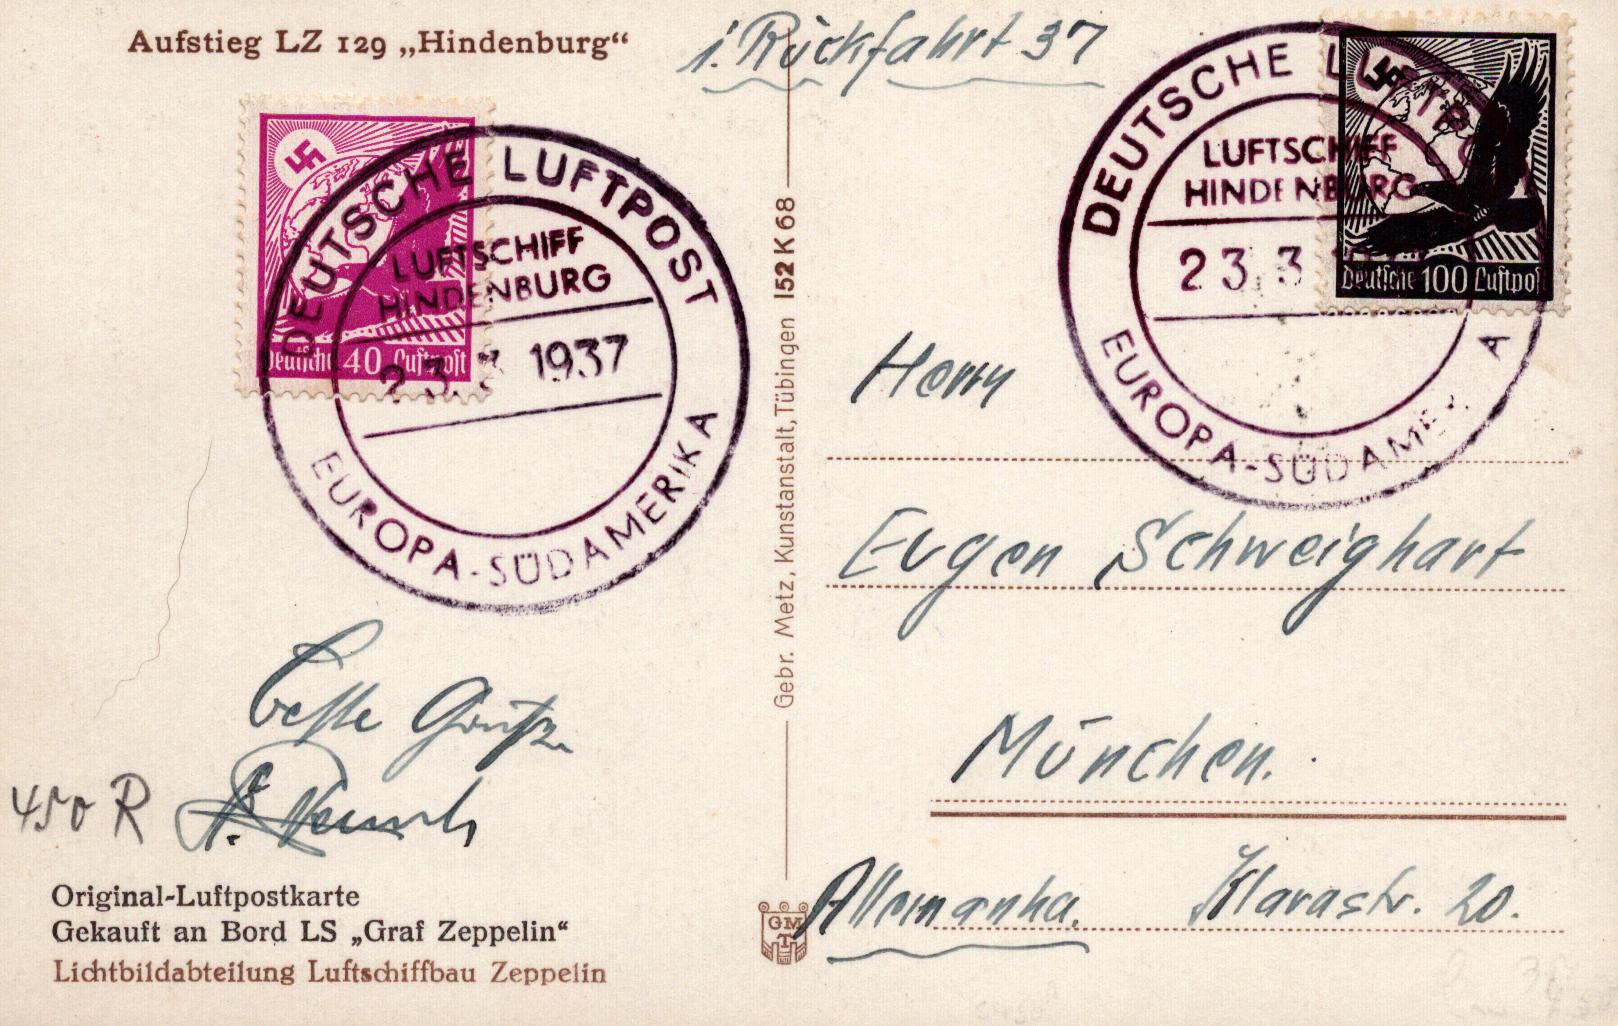 Aufstieg LZ 129 „Hindenburg“
1. Rückfahrt 37
Deutsche 40 Luftpost
DEUTSCHE LUFTPOST
LUFTSCHIFF
HINDENBURG
23. 3 1937
EUROPA-SÜDAMERIKA
Deutsche 100 Luftpost
DEUTSCHE LUFTPO
LUFTSCHIFF
HINDENBURG
23. 3
EUROPA-SÜDAME A
Gebr. Metz, Kunstanstalt, Tübingen 152 K 68
Herrn
Eugen Schweighart
München.
Allemanha. Klarastr. 20.
beste Grüße
450 R
Original-Luftpostkarte
Gekauft an Bord LS „Graf Zeppelin“
Lichtbildabteilung Luftschiffbau Zeppelin
GM
T